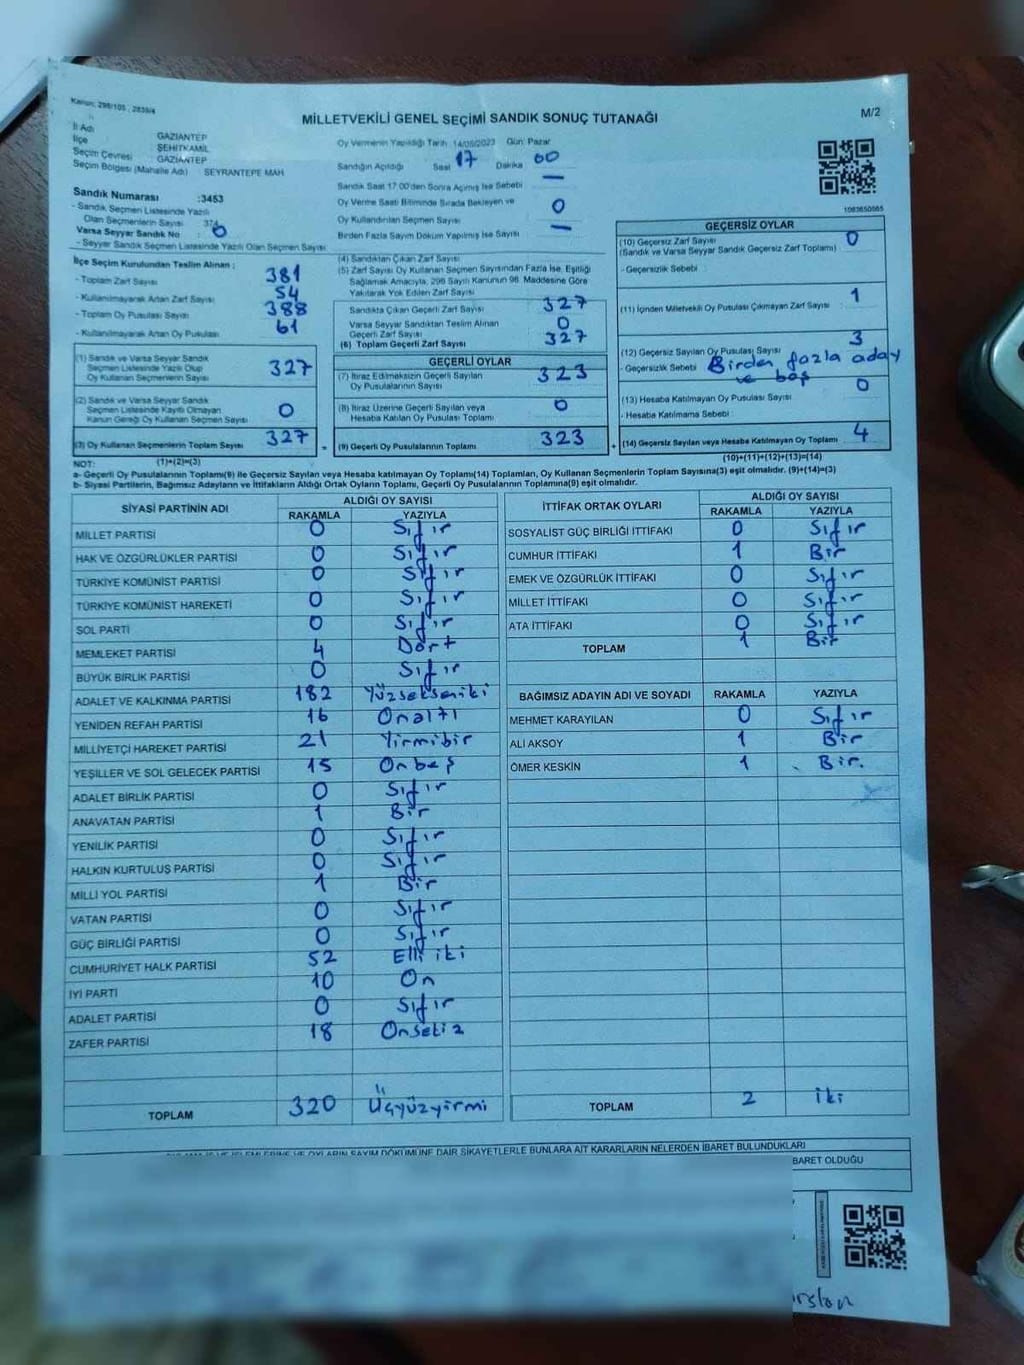 Kanun: 298/105 , 2839/4
MİLLETVEKİLİ GENEL SEÇİMİ SANDIK SONUÇ TUTANAĞI
M/2
İl Adı GAZİANTEP
İlçe ŞEHİTKAMİL
Seçim Çevresi GAZİANTEP
Seçim Bölgesi (Mahalle Adı) SEYRANTEPE MAH
Sandık Numarası :3453
- Sandık Seçmen Listesinde Yazılı
Olan Seçmenlerin Sayısı 374
Varsa Seyyar Sandık No : 0
- Seyyar Sandık Seçmen Listesinde Yazılı Olan Seçmen Sayısı
Oy Vermenin Yapıldığı Tarih 14/05/2023 Gün: Pazar
Sandığın Açıldığı Saat 17 Dakika 00
Sandık Saat 17:00'den Sonra Açmış İse Sebebi —
Oy Verme Saati Bitiminde Sırada Bekleyen ve
Oy Kullandırılan Seçmen Sayısı 0
Birden Fazla Sayım Döküm Yapılmış İse Sayısı —
1083650565
İlçe Seçim Kurulundan Teslim Alınan :
- Toplam Zarf Sayısı 381
- Kullanılmayarak Artan Zarf Sayısı 54
- Toplam Oy Pusulası Sayısı 388
- Kullanılmayarak Artan Oy Pusulası 61
(1) Sandık ve Varsa Seyyar Sandık
Seçmen Listesinde Yazılı Olup
Oy Kullanan Seçmenlerin Sayısı 327
(2) Sandık ve Varsa Seyyar Sandık
Seçmen Listesinde Kayıtlı Olmayan
Kanun Gereği Oy Kullanan Seçmen Sayısı 0
(3) Oy Kullanan Seçmenlerin Toplam Sayısı 327
(1)+(2)=(3)
(4) Sandıktan Çıkan Zarf Sayısı
(5) Zarf Sayısı Oy Kullanan Seçmen Sayısından Fazla İse, Eşitliği
Sağlamak Amacıyla, 298 Sayılı Kanunun 98. Maddesine Göre
Yakılarak Yok Edilen Zarf Sayısı
Sandıkta Çıkan Geçerli Zarf Sayısı 327
Varsa Seyyar Sandıktan Teslim Alınan
Geçerli Zarf Sayısı 0
(6) Toplam Geçerli Zarf Sayısı 327
GEÇERLİ OYLAR
(7) İtiraz Edilmeksizin Geçerli Sayılan
Oy Pusulalarının Sayısı 323
(8) İtiraz Üzerine Geçerli Sayılan veya
Hesaba Katılan Oy Pusulası Toplamı 0
= (9) Geçerli Oy Pusulalarının Toplamı 323
GEÇERSİZ OYLAR
(10) Geçersiz Zarf Sayısı
(Sandık ve Varsa Seyyar Sandık Geçersiz Zarf Toplamı) 0
- Geçersizlik Sebebi :
(11) İçinden Milletvekili Oy Pusulası Çıkmayan Zarf Sayısı 1
(12) Geçersiz Sayılan Oy Pusulası Sayısı 3
- Geçersizlik Sebebi Birden fazla aday
ve boş
(13) Hesaba Katılmayan Oy Pusulası Sayısı 0
- Hesaba Katılmama Sebebi :
+ (14) Geçersiz Sayılan veya Hesaba Katılmayan Oy Toplamı 4
(10)+(11)+(12)+(13)=(14)
NOT:
a- Geçerli Oy Pusulalarının Toplamı(9) ile Geçersiz Sayılan veya Hesaba katılmayan Oy Toplamı(14) Toplamları, Oy Kullanan Seçmenlerin Toplam Sayısına(3) eşit olmalıdır. (9)+(14)=(3)
b- Siyasi Partilerin, Bağımsız Adayların ve İttifakların Aldığı Ortak Oyların Toplamı, Geçerli Oy Pusulalarının Toplamına(9) eşit olmalıdır.
SİYASİ PARTİNİN ADI ALDIĞI OY SAYISI
RAKAMLA YAZIYLA
MİLLET PARTİSİ 0 Sıfır
HAK VE ÖZGÜRLÜKLER PARTİSİ 0 Sıfır
TÜRKİYE KOMÜNİST PARTİSİ 0 Sıfır
TÜRKİYE KOMÜNİST HAREKETİ 0 Sıfır
SOL PARTİ 0 Sıfır
MEMLEKET PARTİSİ 4 Dört
BÜYÜK BİRLİK PARTİSİ 0 Sıfır
ADALET VE KALKINMA PARTİSİ 182 Yüzsekseniki
YENİDEN REFAH PARTİSİ 16 Onaltı
MİLLİYETÇİ HAREKET PARTİSİ 21 Yirmibir
YEŞİLLER VE SOL GELECEK PARTİSİ 15 Onbeş
ADALET BİRLİK PARTİSİ 0 Sıfır
ANAVATAN PARTİSİ 1 Bir
YENİLİK PARTİSİ 0 Sıfır
HALKIN KURTULUŞ PARTİSİ 0 Sıfır
MİLLİ YOL PARTİSİ 1 Bir
VATAN PARTİSİ 0 Sıfır
GÜÇ BİRLİĞİ PARTİSİ 0 Sıfır
CUMHURİYET HALK PARTİSİ 52 Elli iki
İYİ PARTİ 10 On
ADALET PARTİSİ 0 Sıfır
ZAFER PARTİSİ 18 Onsekiz
TOPLAM 320 Üçyüzyirmi
İTTİFAK ORTAK OYLARI ALDIĞI OY SAYISI
RAKAMLA YAZIYLA
SOSYALİST GÜÇ BİRLİĞİ İTTİFAKI 0 Sıfır
CUMHUR İTTİFAKI 1 Bir
EMEK VE ÖZGÜRLÜK İTTİFAKI 0 Sıfır
MİLLET İTTİFAKI 0 Sıfır
ATA İTTİFAKI 0 Sıfır
TOPLAM 1 Bir
BAĞIMSIZ ADAYIN ADI VE SOYADI RAKAMLA YAZIYLA
MEHMET KARAYILAN 0 Sıfır
ALİ AKSOY 1 Bir
ÖMER KESKİN 1 Bir.
TOPLAM 2 iki
OYLARIN SAYIM DÖKÜMÜNE DAİR ŞİKAYETLERLE BUNLARA AİT KARARLARIN NELERDEN İBARET BULUNDUKLARI
BARET OLDUĞU